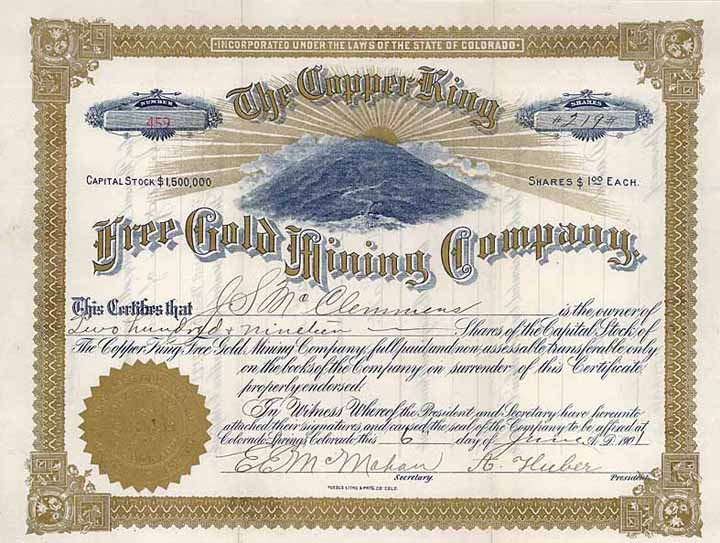 INCORPORATED UNDER THE LAWS OF THE STATE OF COLORADO
The Copper King
NUMBER
459
SHARES
#219#
CAPITAL STOCK $1,500,000
SHARES $1.00 EACH.
Free Gold Mining Company.
This Certifies that J S McClemmens is the owner of
Two hundred & nineteen Shares of the Capital Stock of
The Copper King Free Gold Mining Company, full paid and non-assessable transferable only
on the books of the Company on surrender of this Certificate
properly endorsed.
In Witness Whereof the President and Secretary have hereunto
attached their signatures and caused the seal of the Company to be affixed at
Colorado Springs Colorado this 6 day of June A.D. 1901
E E McMahan K. Huber
Secretary. President.
PUEBLO LITHO & PRTG. CO. COLO.